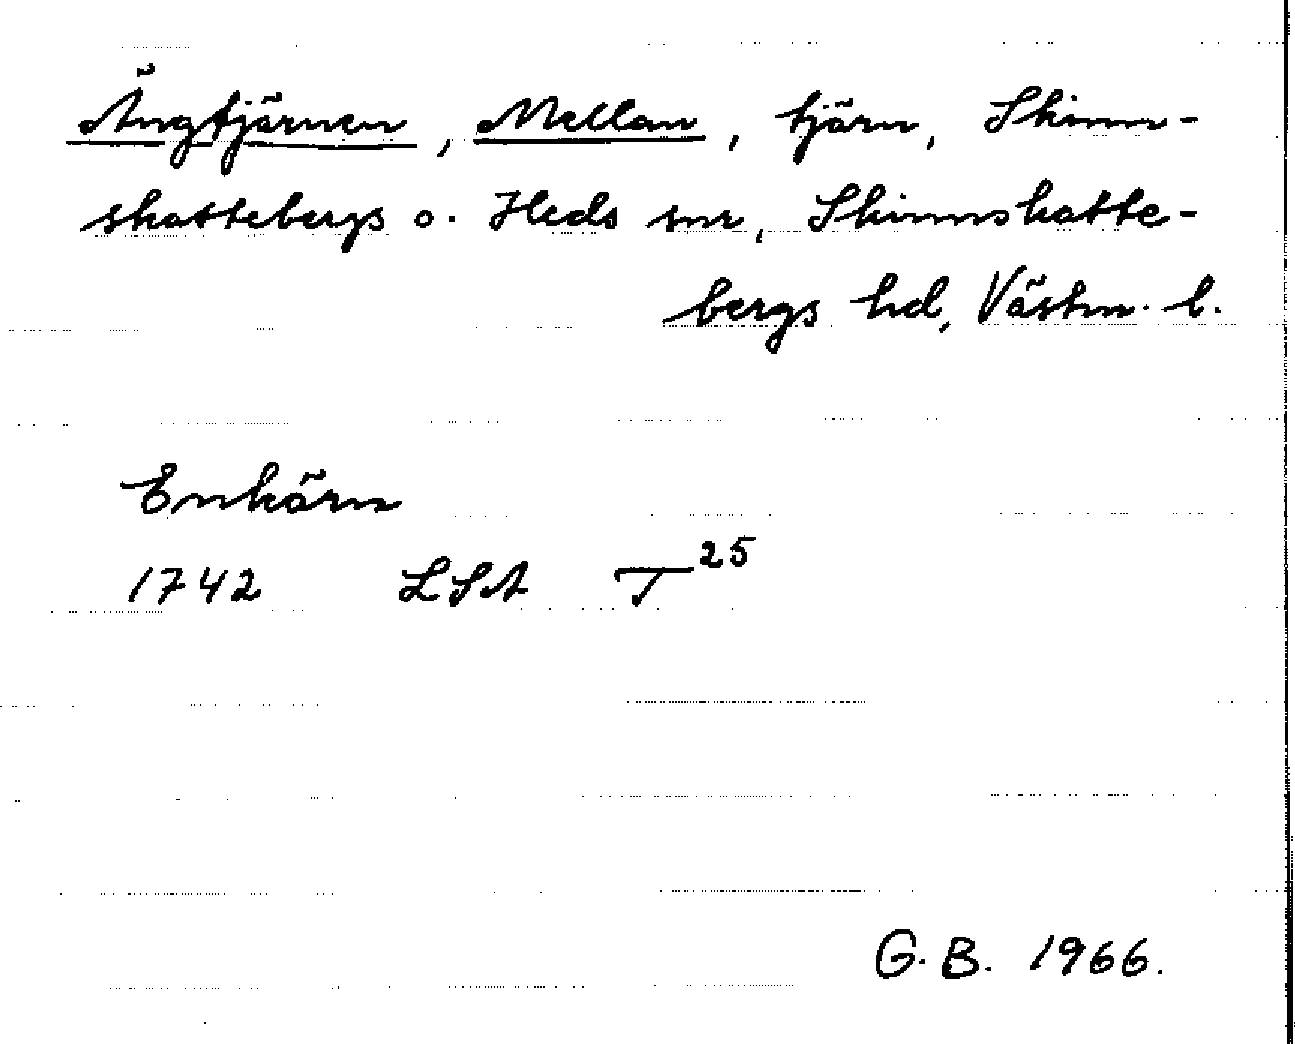 Ängtjärnen, Mellan, tjärn, Skinn-
skattebergs o. Heds snr, Skinnskatte-
bergs hd, Västm. l.
Enkärn
1742 LSA T 25
G. B. 1966.